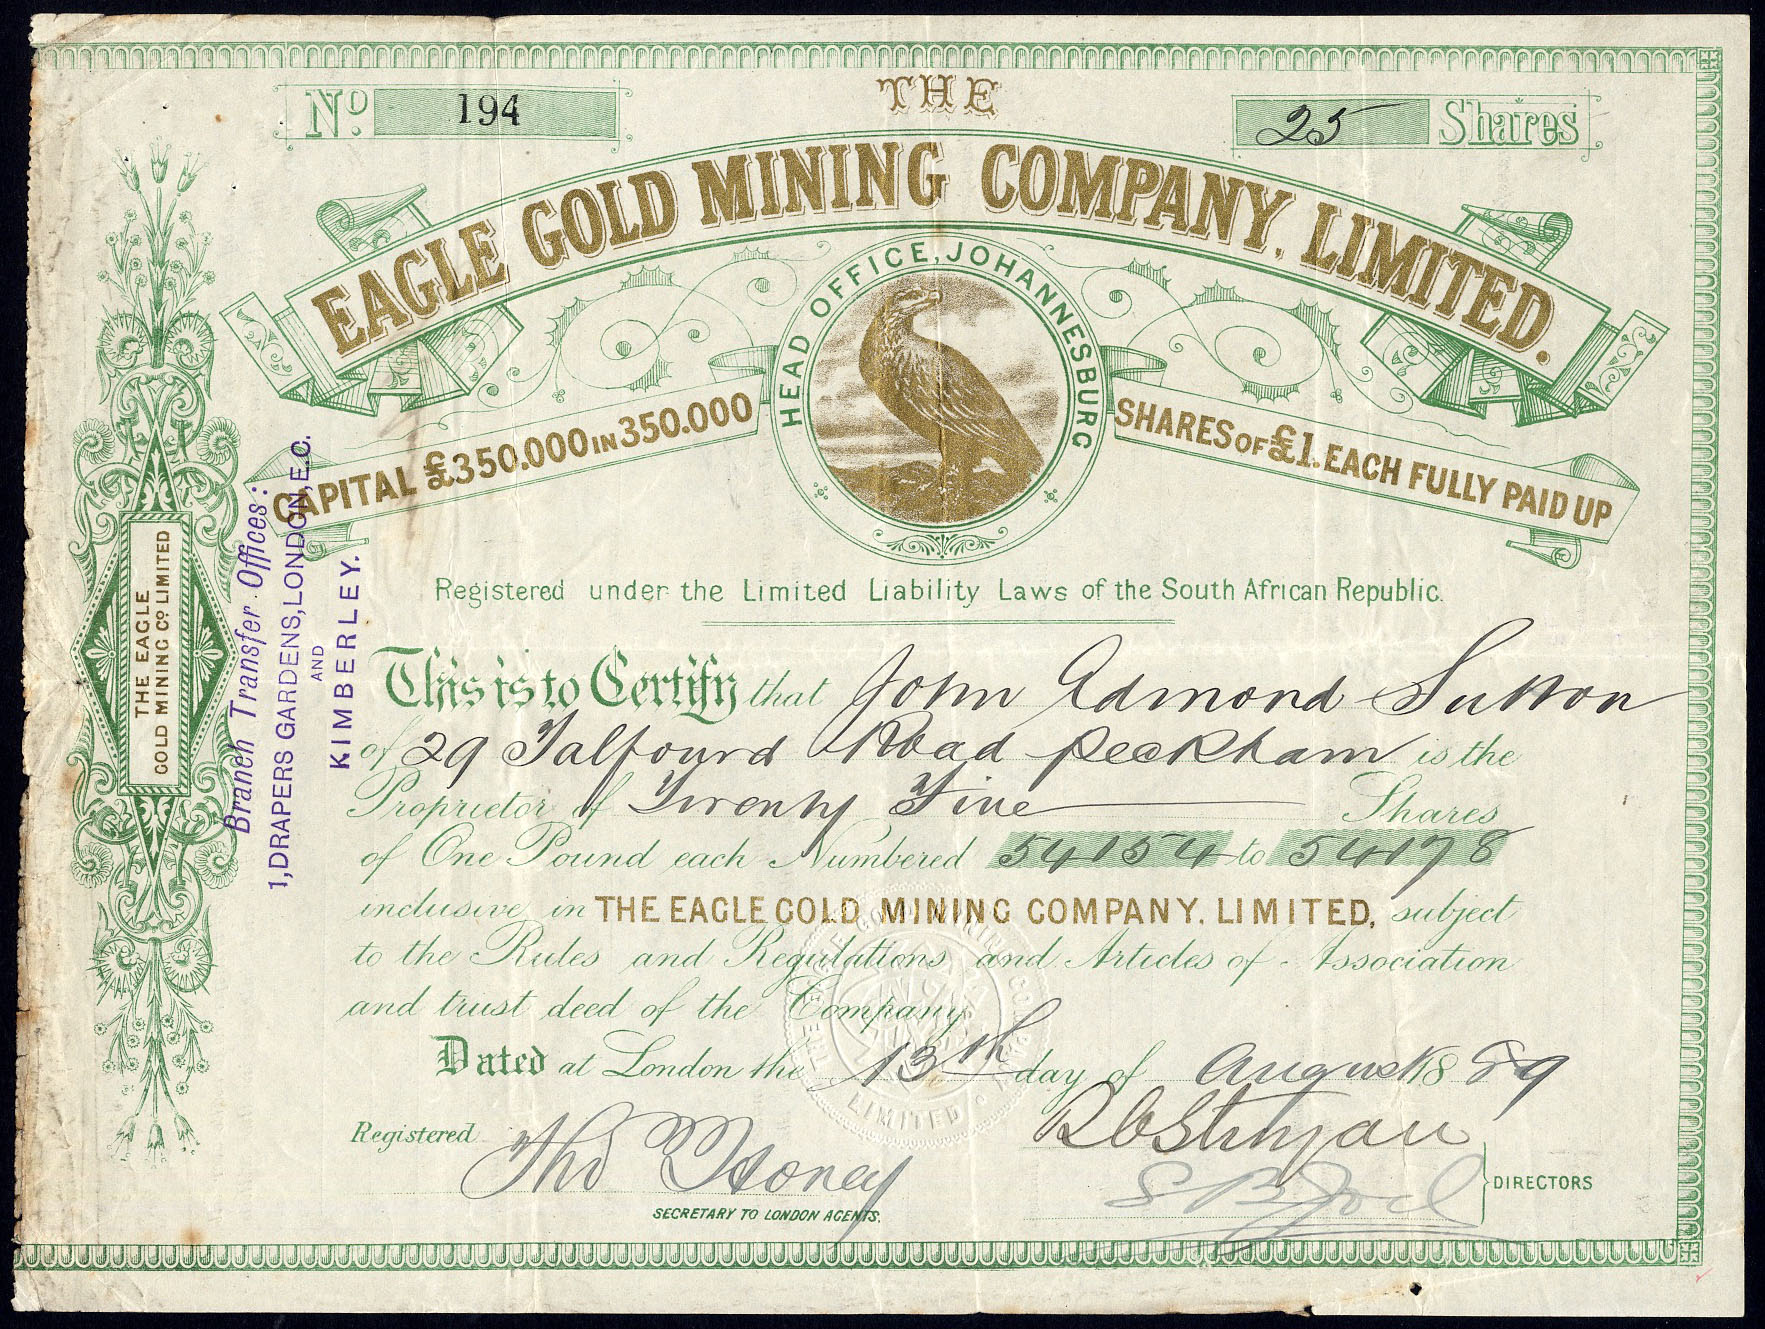 No. 194
THE
25 Shares
EAGLE GOLD MINING COMPANY, LIMITED.
HEAD OFFICE, JOHANNESBURG
CAPITAL £350.000 IN 350.000
SHARES OF £1. EACH FULLY PAID UP
Registered under the Limited Liability Laws of the South African Republic.
This is to Certify that John Edmond Sutton
of 29 Talfourd Road Peckham is the
Proprietor of Twenty Five Shares
of One Pound each Numbered 54154 to 54178
inclusive in THE EAGLE GOLD MINING COMPANY, LIMITED, subject
to the Rules and Regulations and Articles of Association
and trust deed of the Company.
Dated at London the 13th day of August 1889
Registered
SECRETARY TO LONDON AGENTS.
S B Joel
DIRECTORS
THE EAGLE
GOLD MINING CO. LIMITED
Branch Transfer Offices:
1, DRAPERS GARDENS, LONDON, E.C.
AND
KIMBERLEY.
THE EAGLE GOLD MINING COMPANY LIMITED